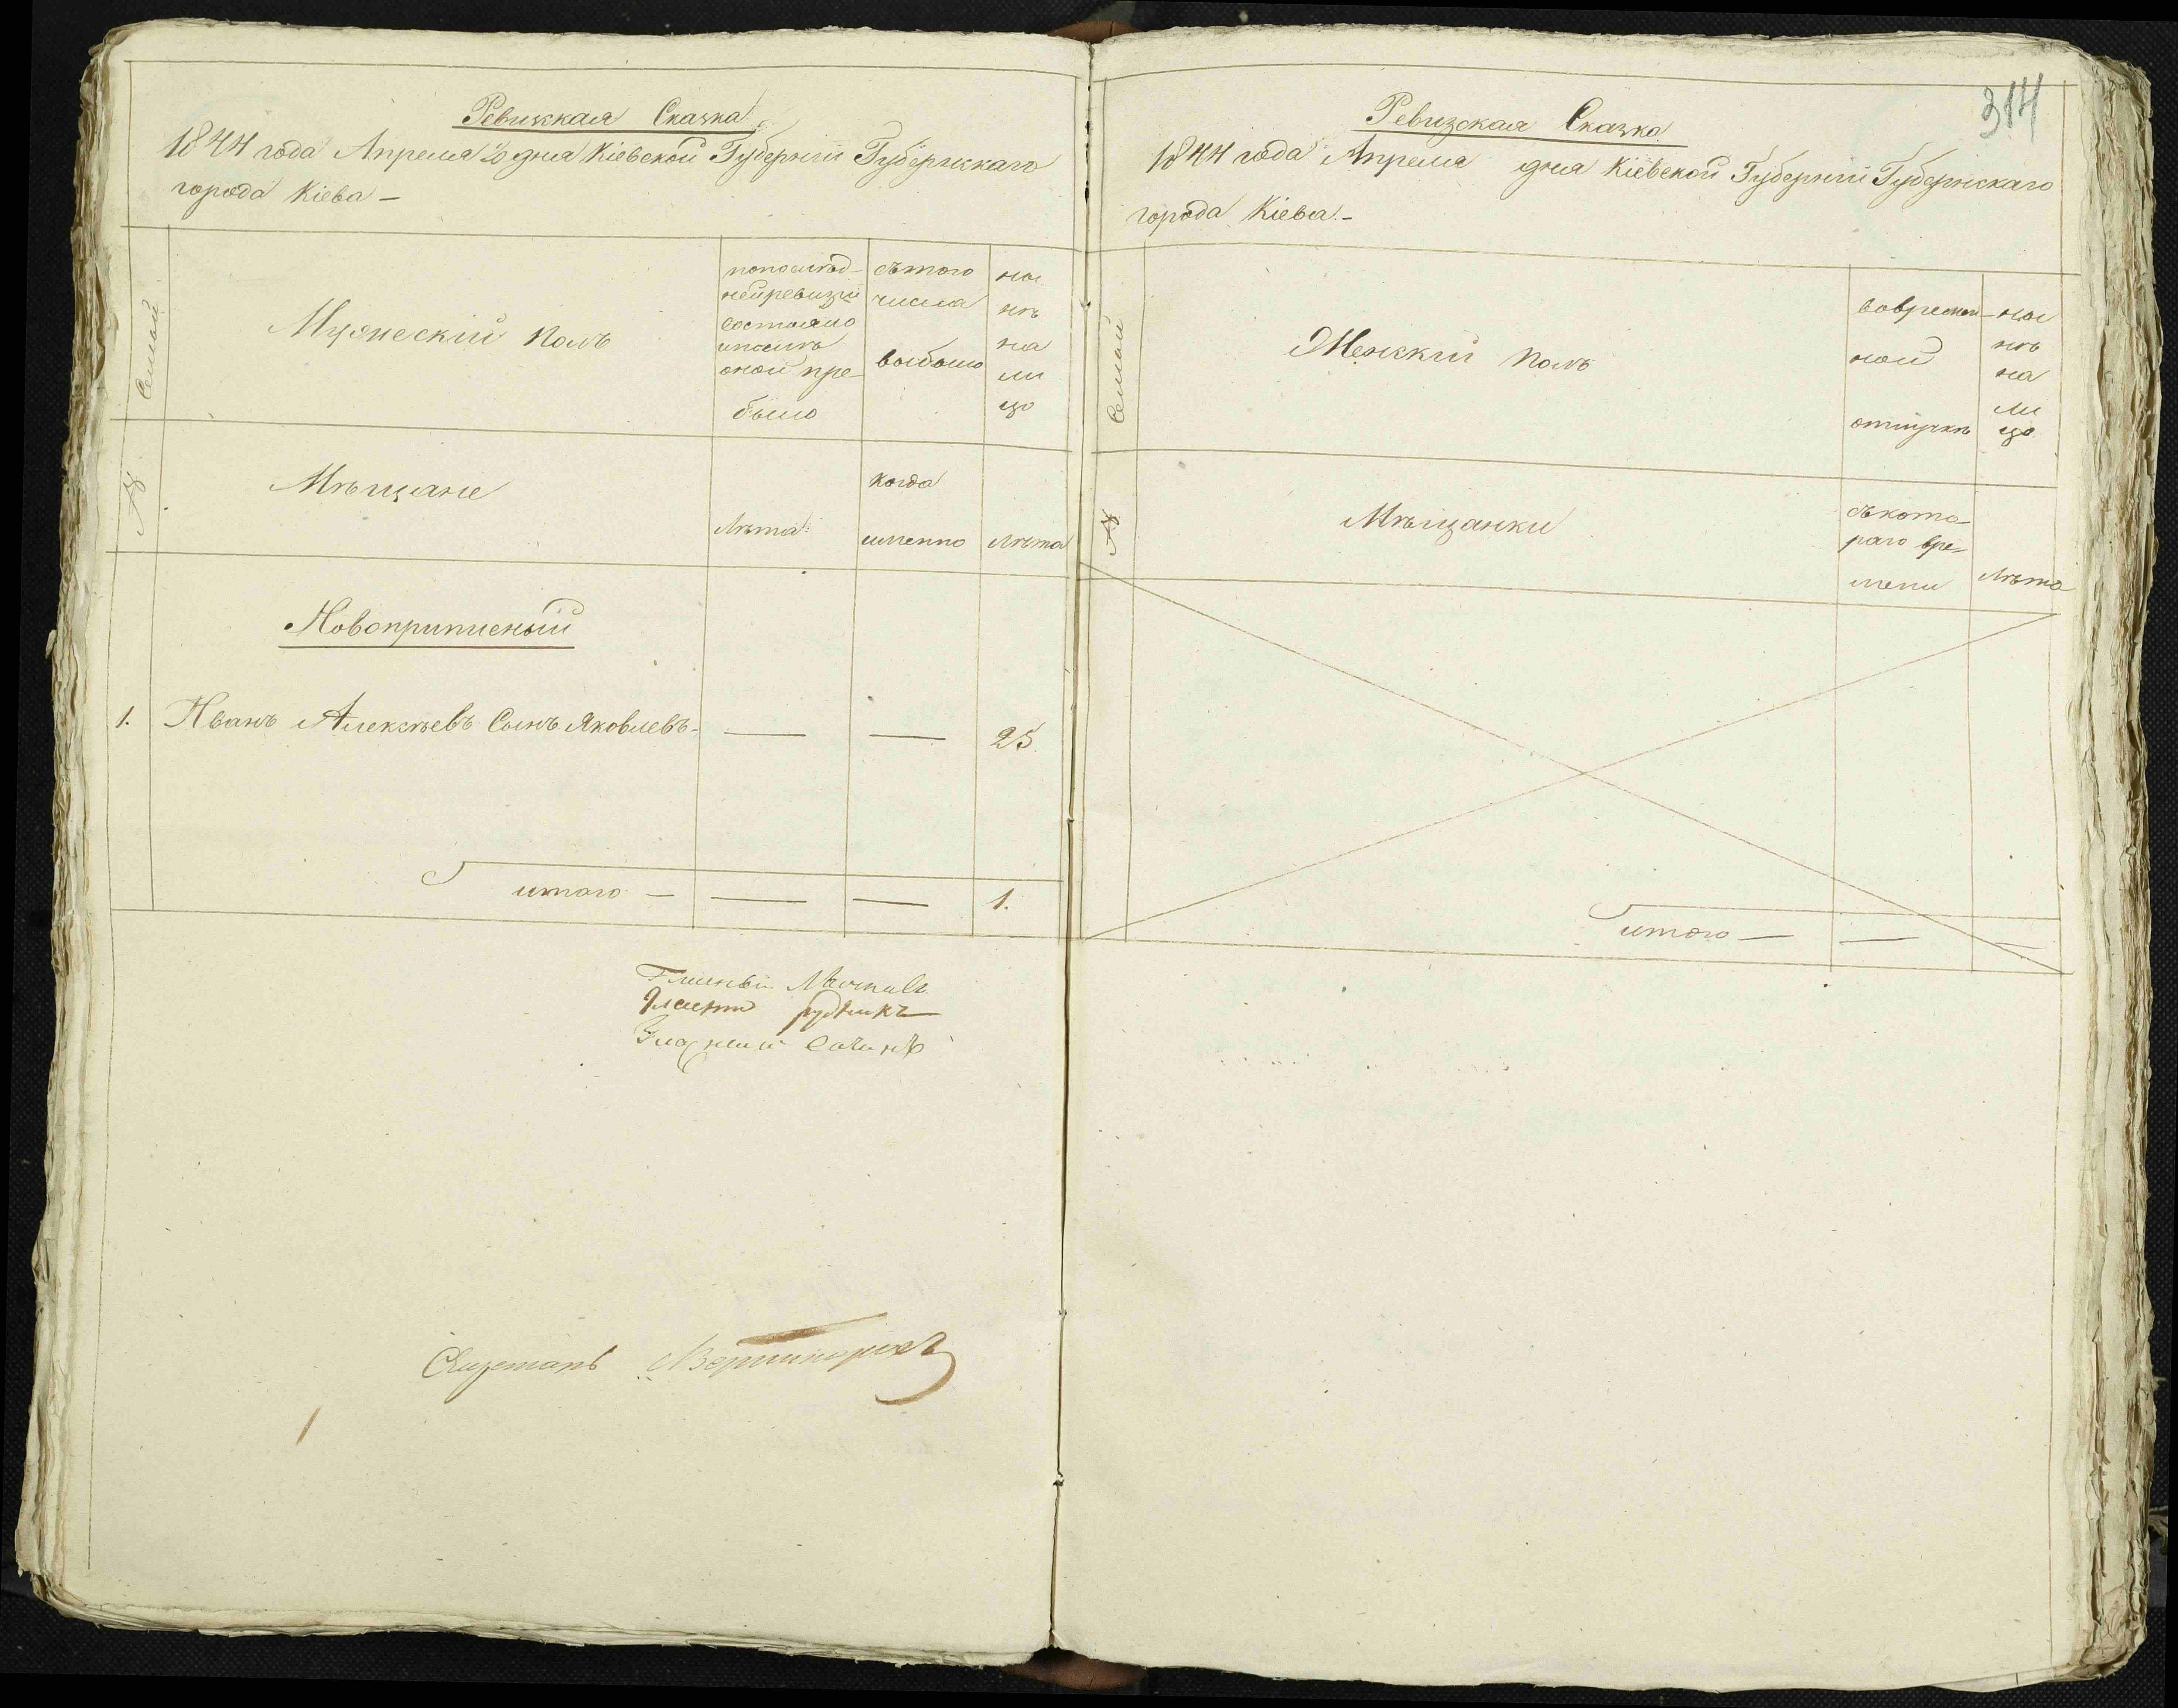 Ревизская Сказка
1844 года Апреля 20 дня Кіевской Губерніи Губернскаго
города Кіева —
Семьи
Мужескій полъ
попослѣд-
ней ревизіи
состояло
ипослѣ
оной при-
было
сътого
числа
выбыло
ны
нѣ
на
ли
цо
№
Мѣщане
Лѣта
когда
именно
Лѣта
Новоприписный
1. Иванъ Алексѣевъ Сынъ Яковлевъ — — 25.
итого — — — 1.
314
Ревизская Сказка
1844 года Апреля дня Кіевской Губерніи Губернскаго
города Кіева. —
Семьи
Женскій полъ
вовремен-
ной
отлучкѣ
ны
нѣ
на
ли
цо
№
Мѣщанки
съкото-
раго вре-
мени
Лѣта
итого — — —